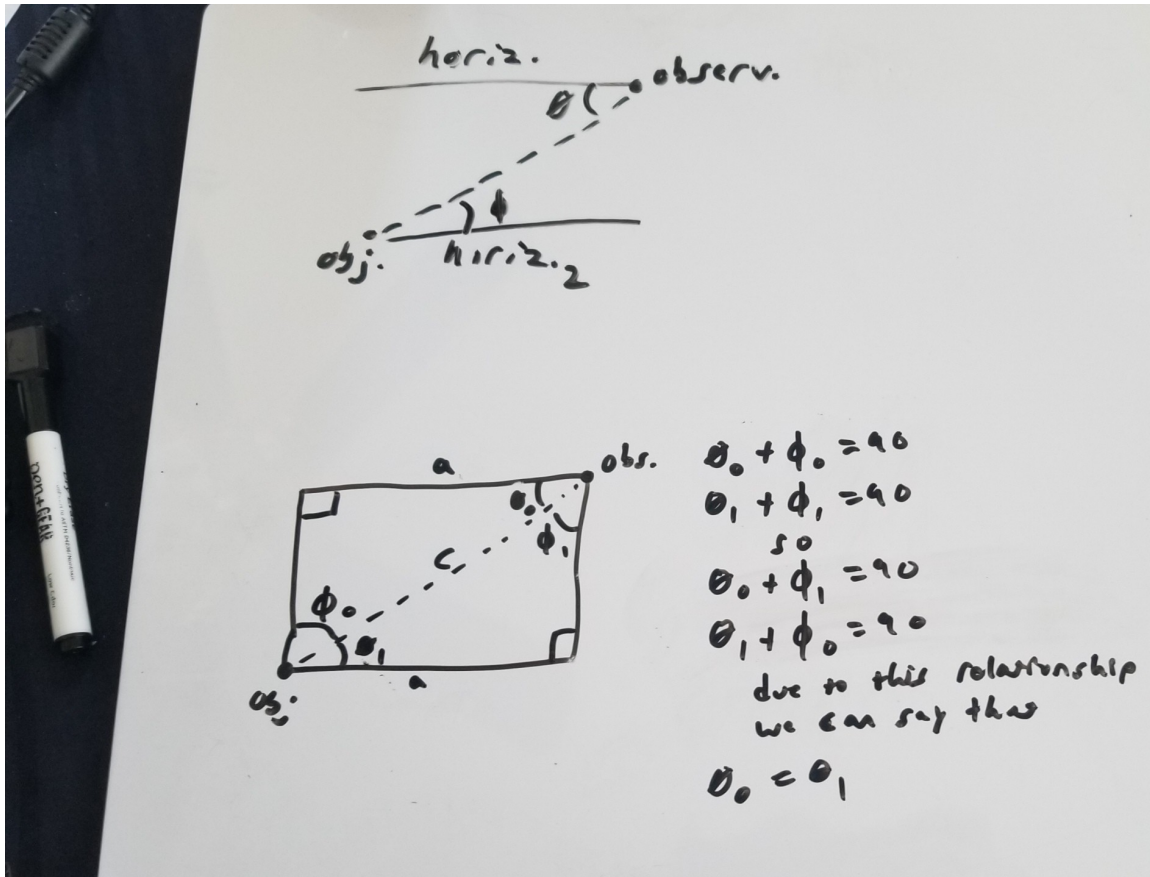 horiz.
observ.
θ
ϕ
obj.
horiz.2
a
obs.
θ0
ϕ1
c
ϕ0
θ1
a
obj
θ0 + ϕ0 = 90
θ1 + ϕ1 = 90
so
θ0 + ϕ1 = 90
θ1 + ϕ0 = 90
due to this relationship
we can say that
θ0 = θ1
pen+GEAR